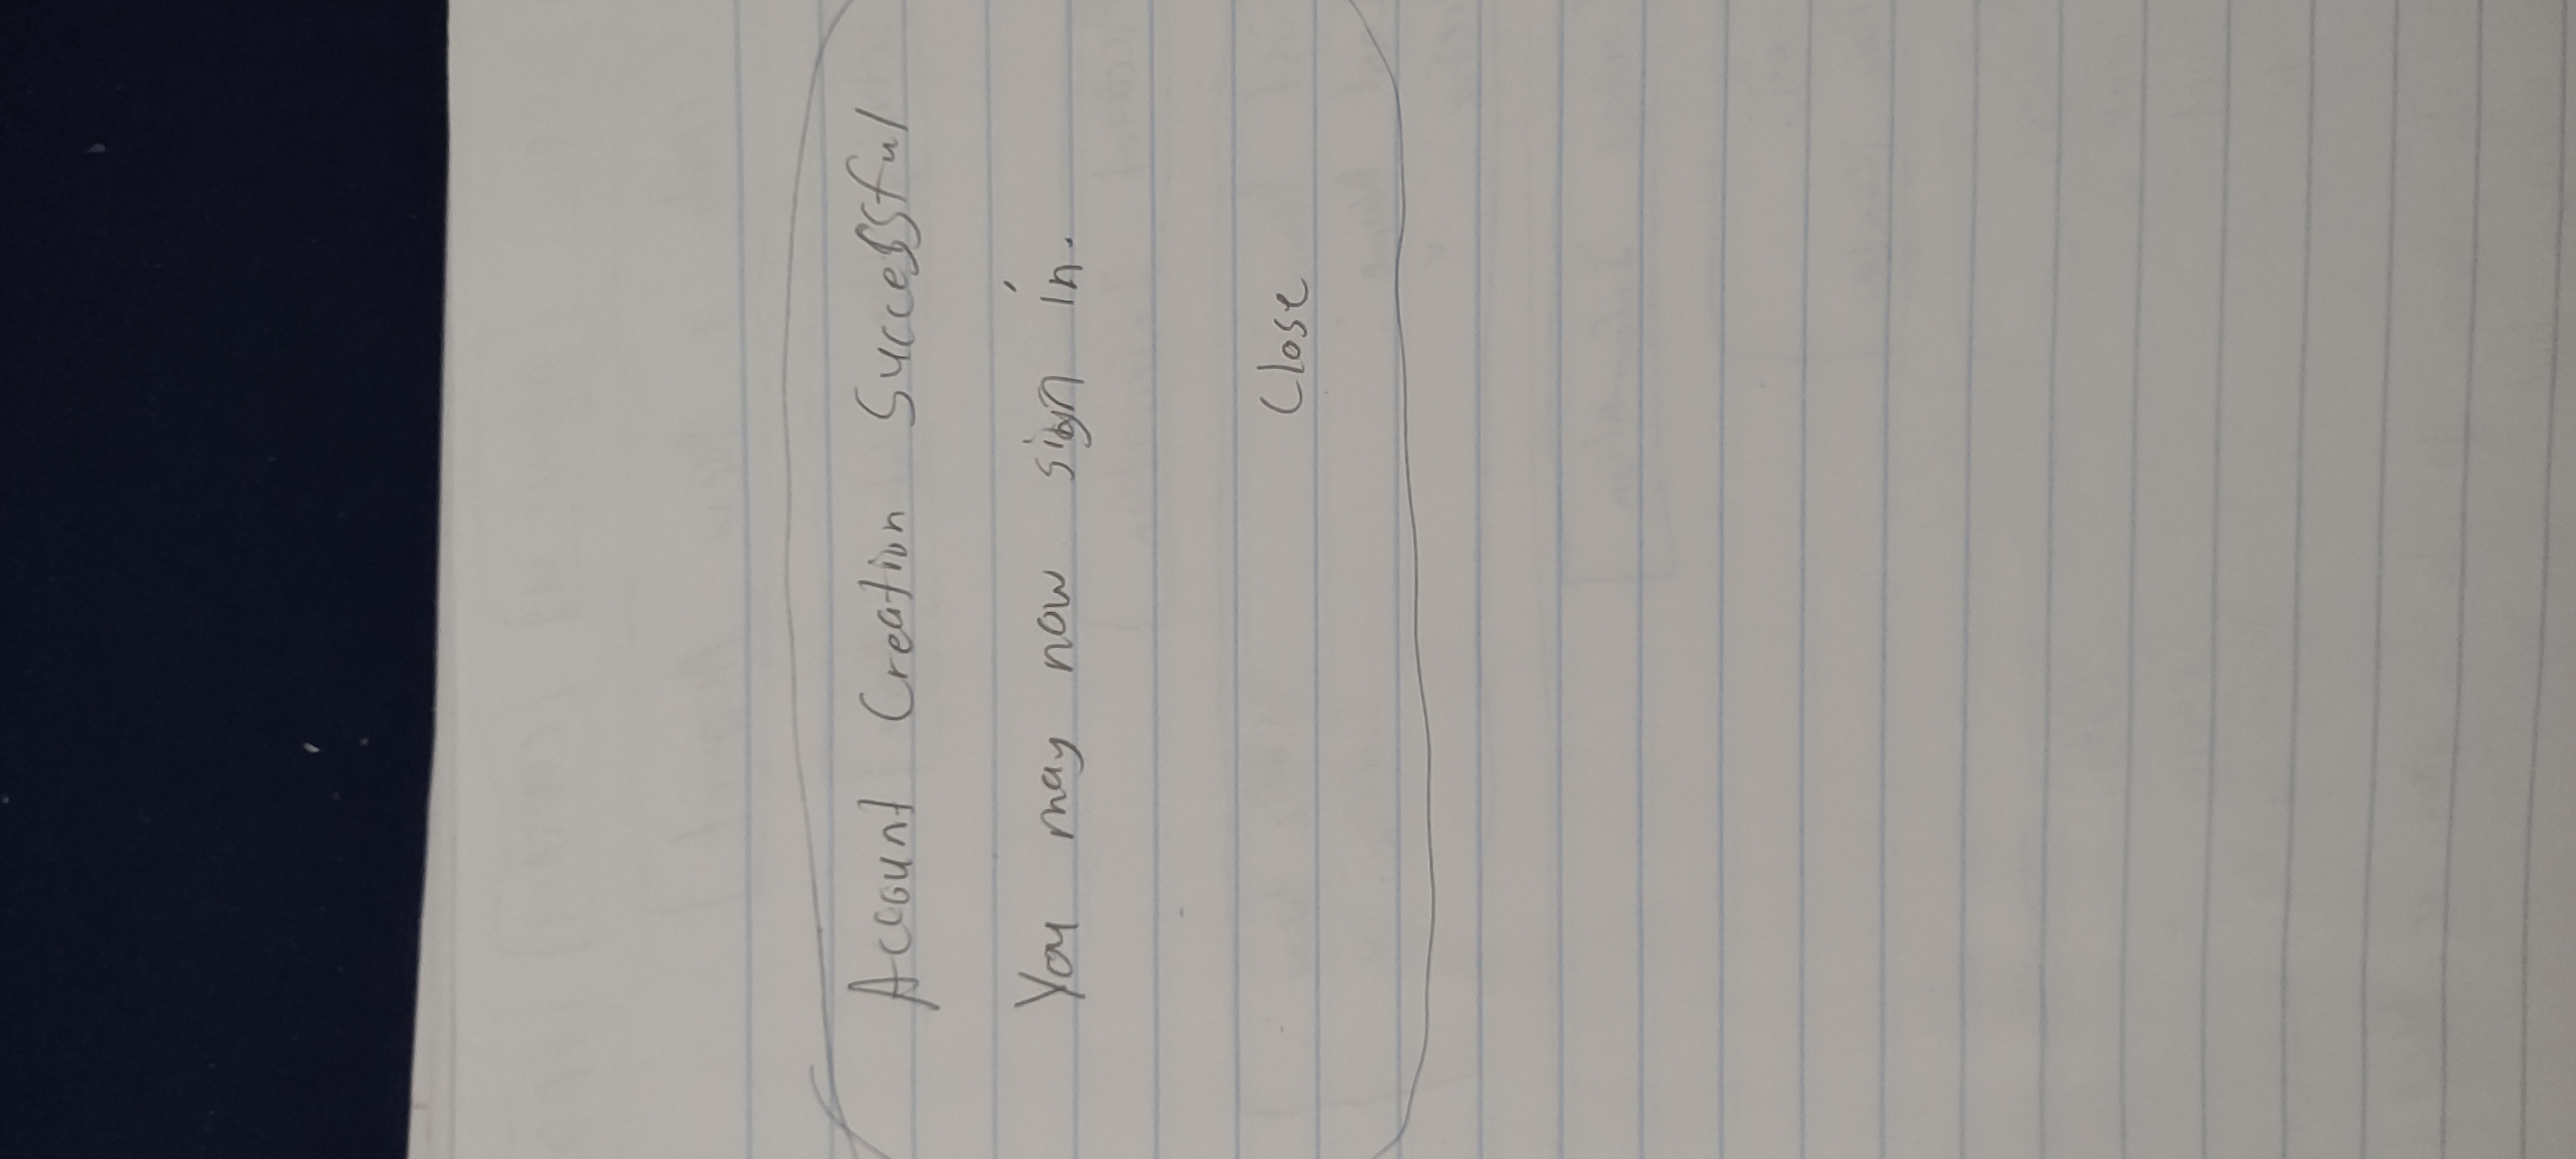 Account Creation Successful
You may now sign in.
Close